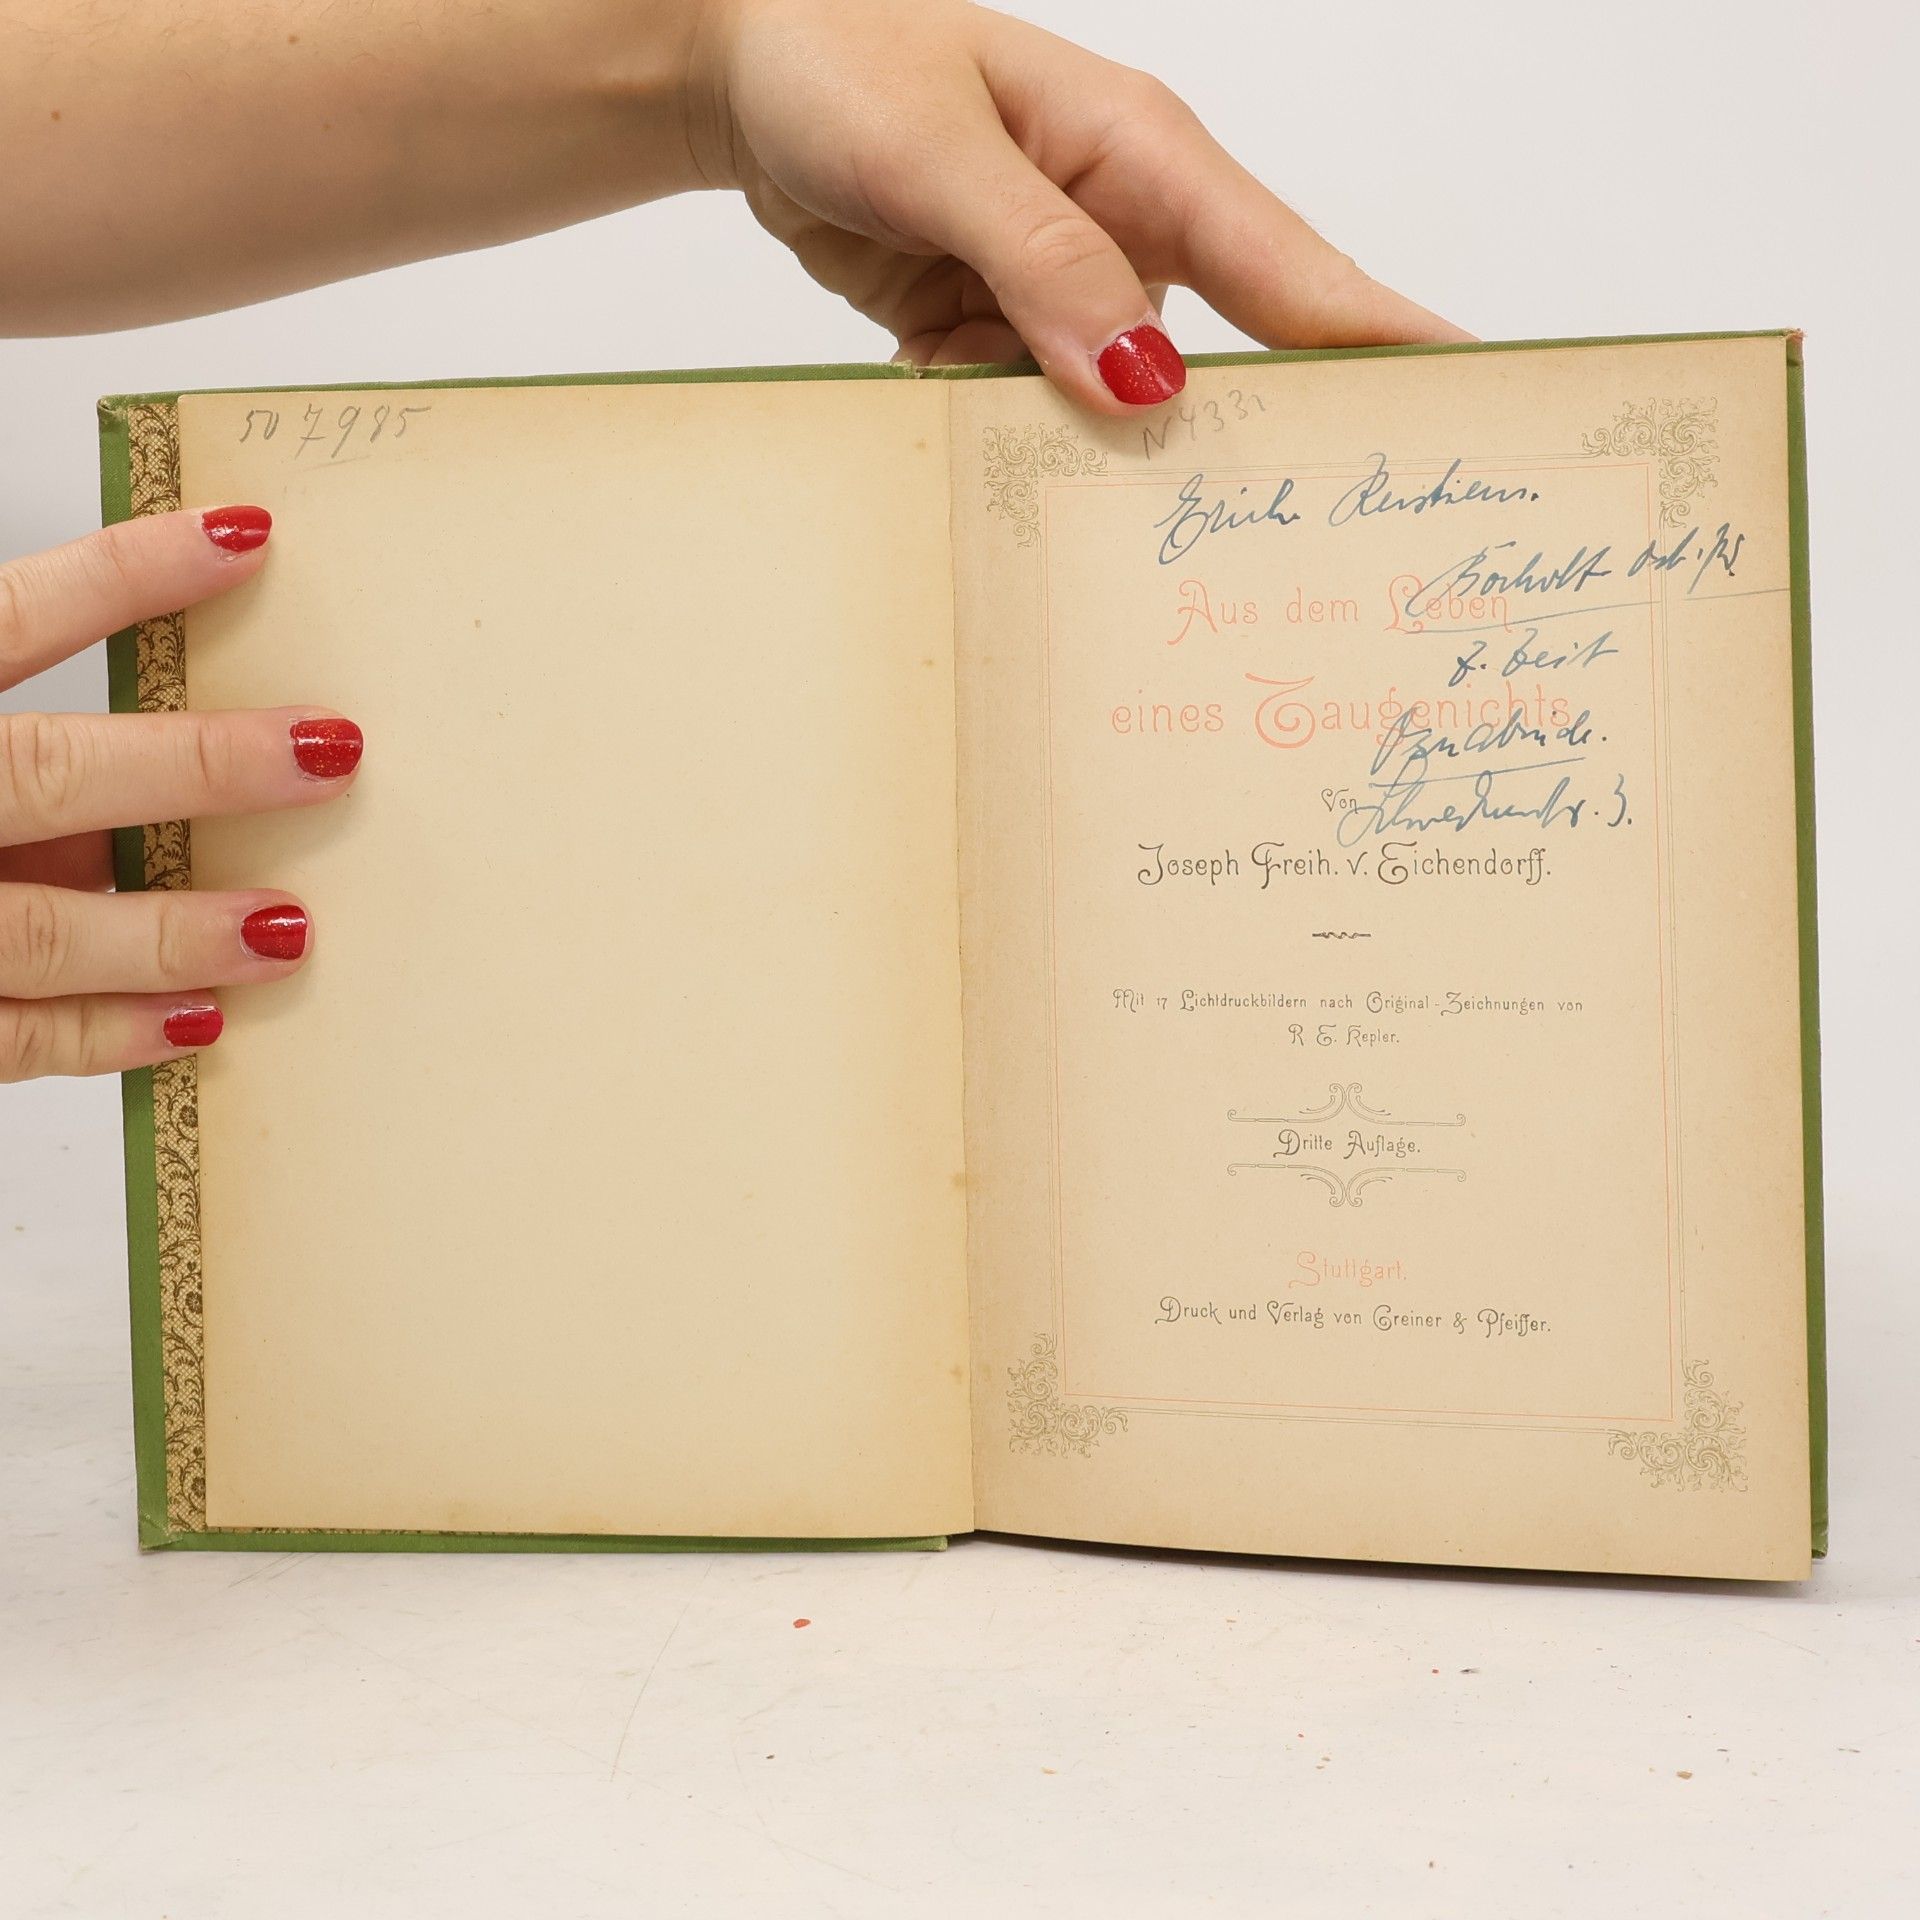 50 7985
N 4331
Erich
z. Zeit
Osnabrück.
3.
Aus dem Leben
eines Taugenichts
Von
Joseph Freih. v. Eichendorff.
Mit 17 Lichtdruckbildern nach Original-Zeichnungen von
R. E. Kepler.
Dritte Auflage.
Stuttgart.
Druck und Verlag von Greiner & Pfeiffer.